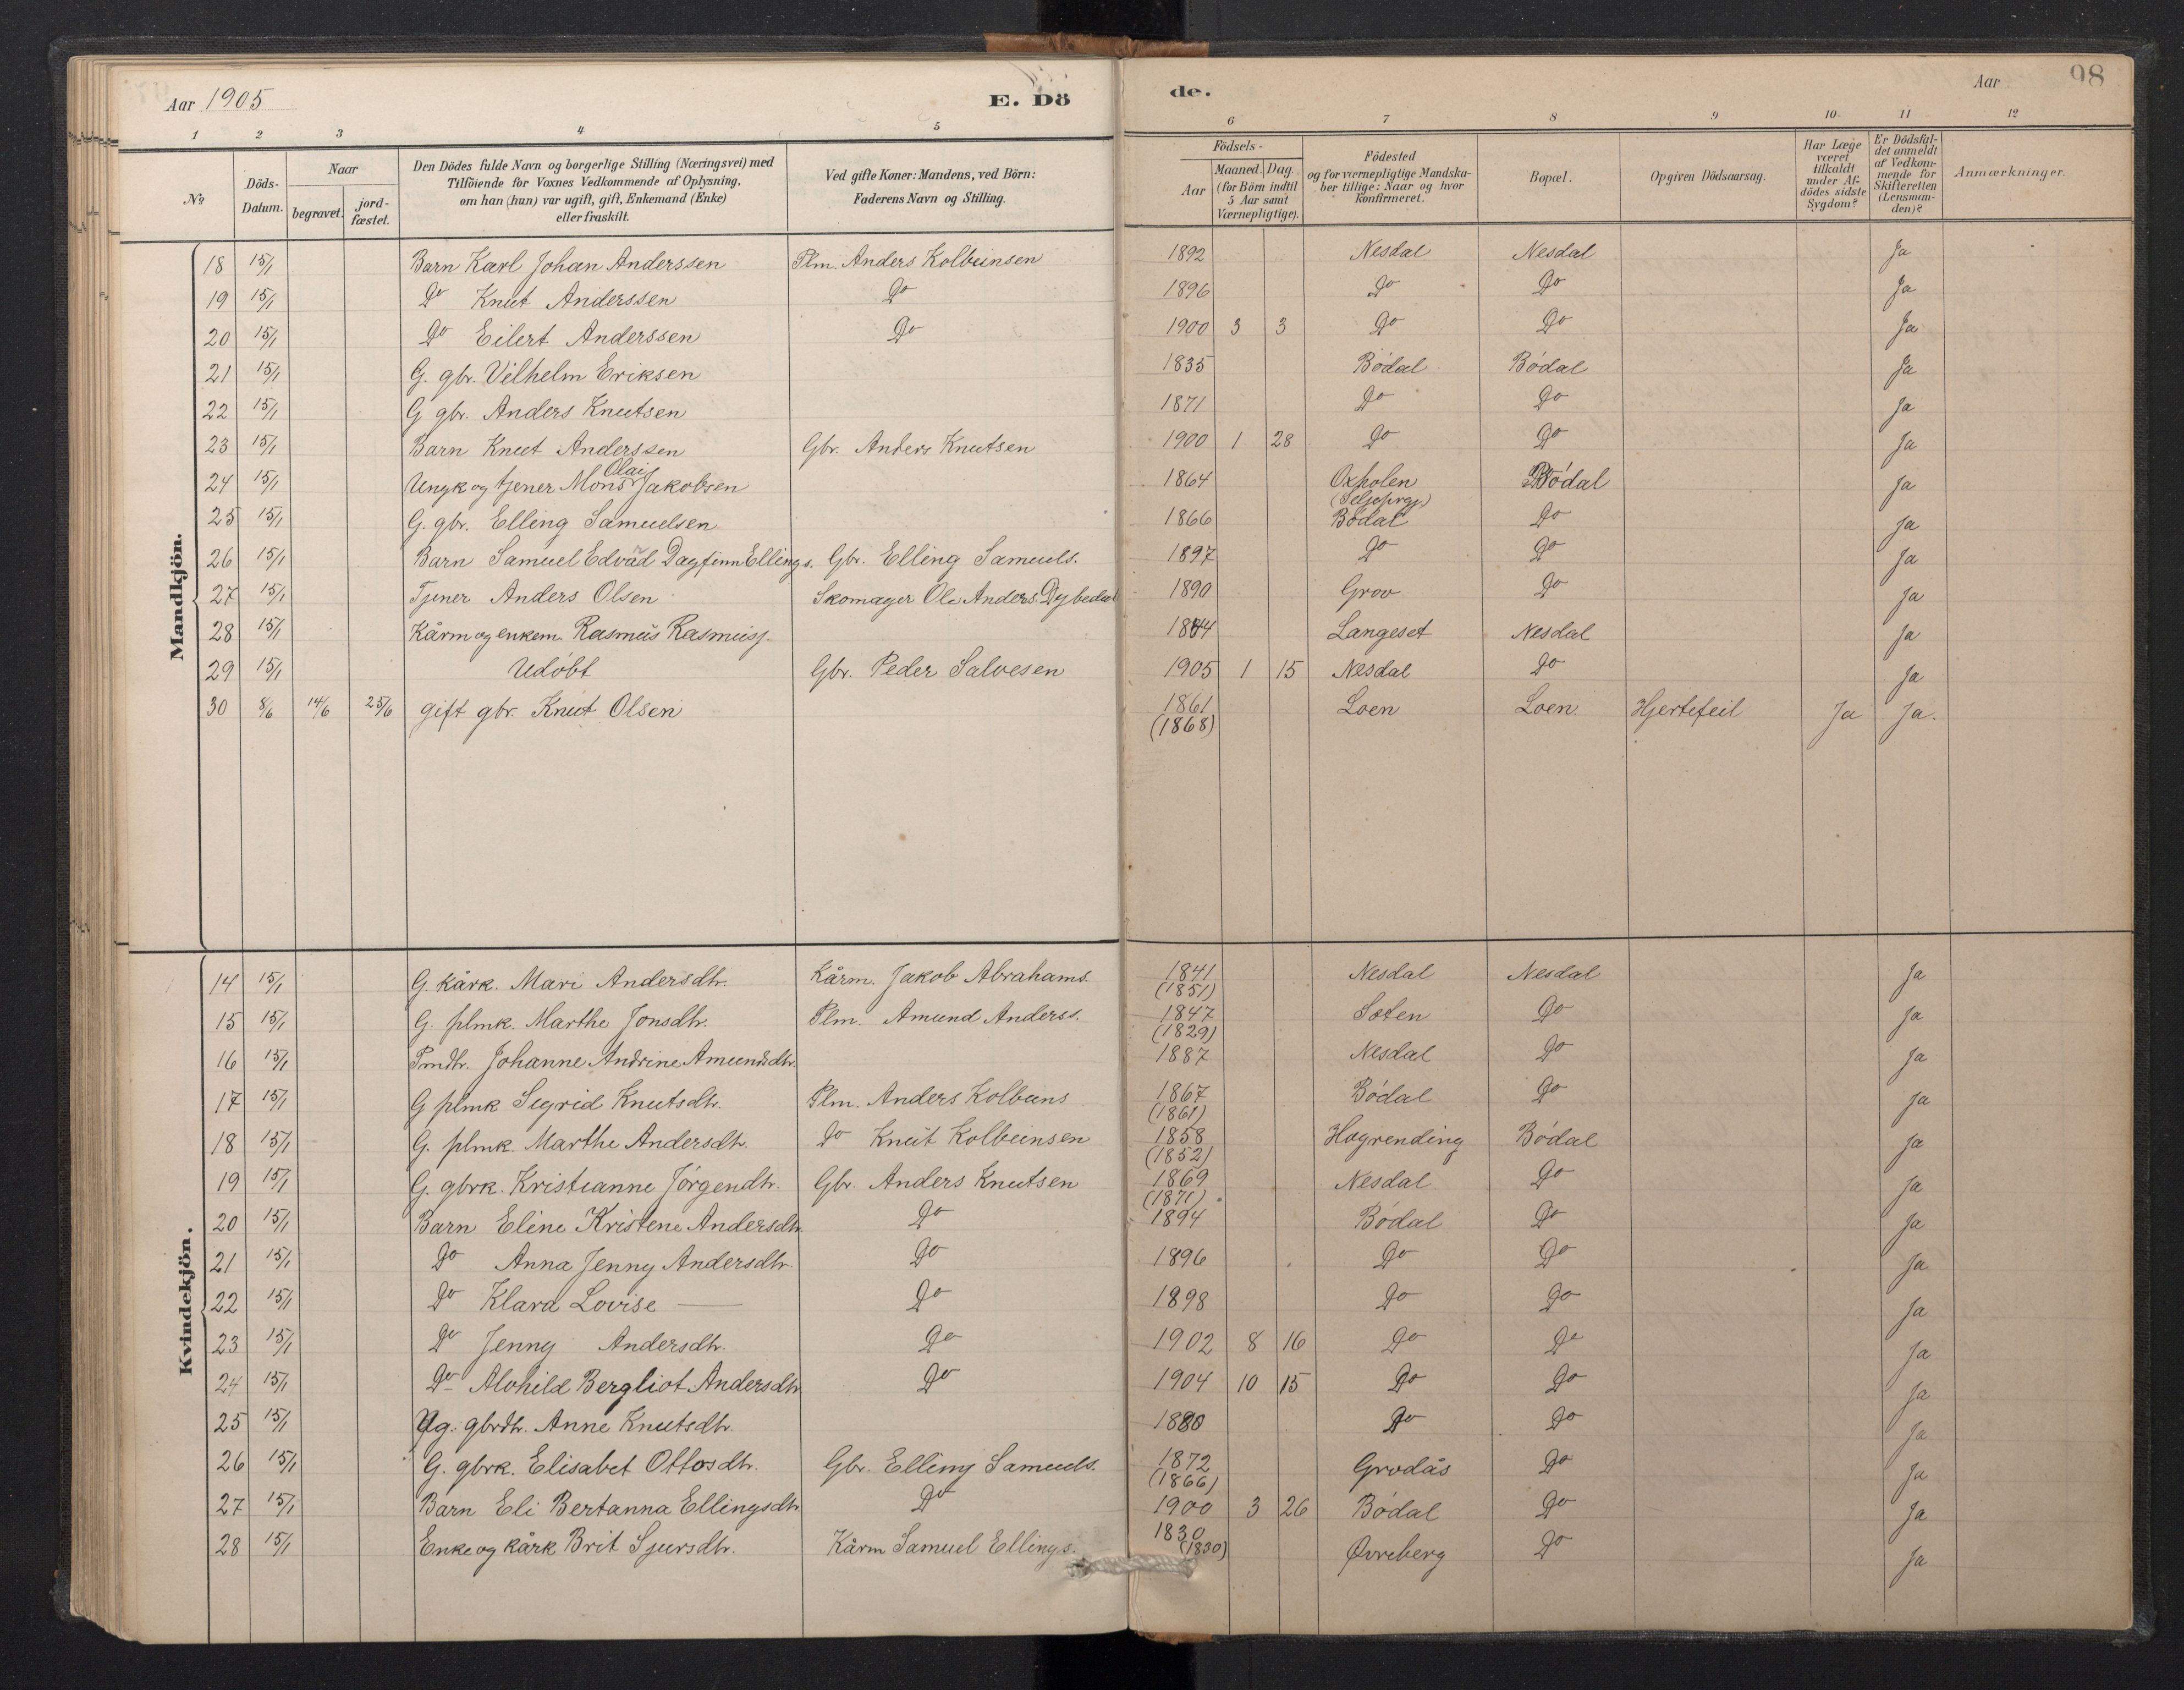 Aar 1905 E. Dö
de. Aar 98
1 2 3 4 5 6 7 8 9 10 11 12
No
Döds-Datum.
Naar
begravet.
jord-fæstet.
Den Dödes fulde Navn og borgerlige Stilling (Næringsvei) med
Tilföiende for Voxnes Vedkommende af Oplysning,
om han (hun) var ugift, gift, Enkemand (Enke)
eller fraskilt.
Ved gifte Koner: Mandens, ved Börn:
Faderens Navn og Stilling.
Födsels-
Aar
Maaned. Dag.
(for Börn indtil
5 Aar samt
Værnepligtige).
Födested
og for værnepligtige Mandska-
ber tillige: Naar og hvor
Konfirmeret.
Bopæl.
Opgiven Dödsaarsag.
Har Læge
været
tilkaldt
under Af-
dödes sidste
Sygdom?
Er Dödsfal-
det anmeldt
af Vedkom-
mende for
Skifteretten
(Lensman-
den)?
Anmærkninger.
Mandkjön.
18 15/1 Barn Karl Johan Anderssen Plm. Anders Kolbeinsen 1892 Nesdal Nesdal Ja
19 15/1 Do Knut Anderssen Do 1896 Do Do Ja
20 15/1 Do Eilert Anderssen Do 1900 3 3 Do Do Ja
21 15/1 G. gbr. Vilhelm Eriksen 1835 Bödal Bödal Ja
22 15/1 G gbr. Anders Knutsen 1871 Do Do Ja
23 15/1 Barn Knut Anderssen Gbr. Anders Knutsen 1900 1 28 Do Do Ja
24 15/1 Ungk og tjener Mons Olai Jakobsen 1864 Oxholen Bödal Ja
(Seljeprgj.)
25 15/1 G. gbr. Elling Samuelsen 1866 Bödal Do Ja
26 15/1 Barn Samuel Edvad Dagfinn Ellings. Gbr. Elling Samuels. 1897 Do Do Ja
27 15/1 Tjener Anders Olsen Skomager Ole Anders. Dybedal 1890 Grov Do Ja
28 15/1 Kårm og enkem. Rasmus Rasmuss. 1844 Langeset Nesdal Ja
29 15/1 Udöbt Gbr. Peder Salvesen 1905 1 15 Nesdal Do Ja
30 8/6 14/6 25/6 gift gbr. Knut Olsen 1861 Loen Loen. Hjertefeil Ja Ja.
(1868)
Kvindekjön.
14 15/1 G. kårk. Mari Andersdtr. Kårm. Jakob Abrahams. 1841 Nesdal Nesdal Ja
(1851)
15 15/1 G. plmk. Marthe Jonsdtr. Plm. Amund Anderss. 1847 Sæten Do Ja
(1829)
16 15/1 Pmdtr. Johanne Andrine Amundsdtr. 1887 Nesdal Do Ja
17 15/1 G plmk Sigrid Knutsdtr. Plm. Anders Kolbeins 1867 Bödal Do Ja
(1861)
18 15/1 G. plmk. Marthe Andersdtr. Do Knut Kolbeinsen 1858 Hogrending Bödal Ja
(1852)
19 15/1 G. gbrk. Kristianne Jörgendtr. Gbr. Anders Knutsen 1869 Nesdal Do Ja
(1871)
20 15/1 Barn Eline Kristene Andersdtr Do 1894 Bödal Do Ja
21 15/1 Do Anna Jenny Andersdtr. Do 1896 Do Do Ja
22 15/1 Do Klara Lovise — Do 1898 Do Do Ja
23 15/1 Do Jenny Andersdtr. Do 1902 8 16 Do Do Ja
24 15/1 Do Alvhild Bergliot Andersdtr Do 1904 10 15 Do Do Ja
25 15/1 Ug. gbrdtr. Anne Knutsdtr. 1880 Do Do Ja
26 15/1 G. gbrk. Elisabet Ottosdtr. Gbr. Elling Samuels. 1872 Grodås Do Ja
(1866)
27 15/1 Barn Eli Bertanna Ellingsdtr Do 1900 3 26 Bödal Do Ja
28 15/1 Enke og kårk Brit Sjursdtr. Kårm Samuel Ellings. 1830 Øvreberg Do Ja
(1830)